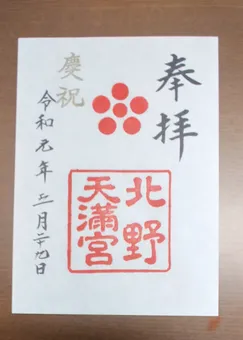 奉拝
北野
天満宮
慶祝
令和元年五月二十九日